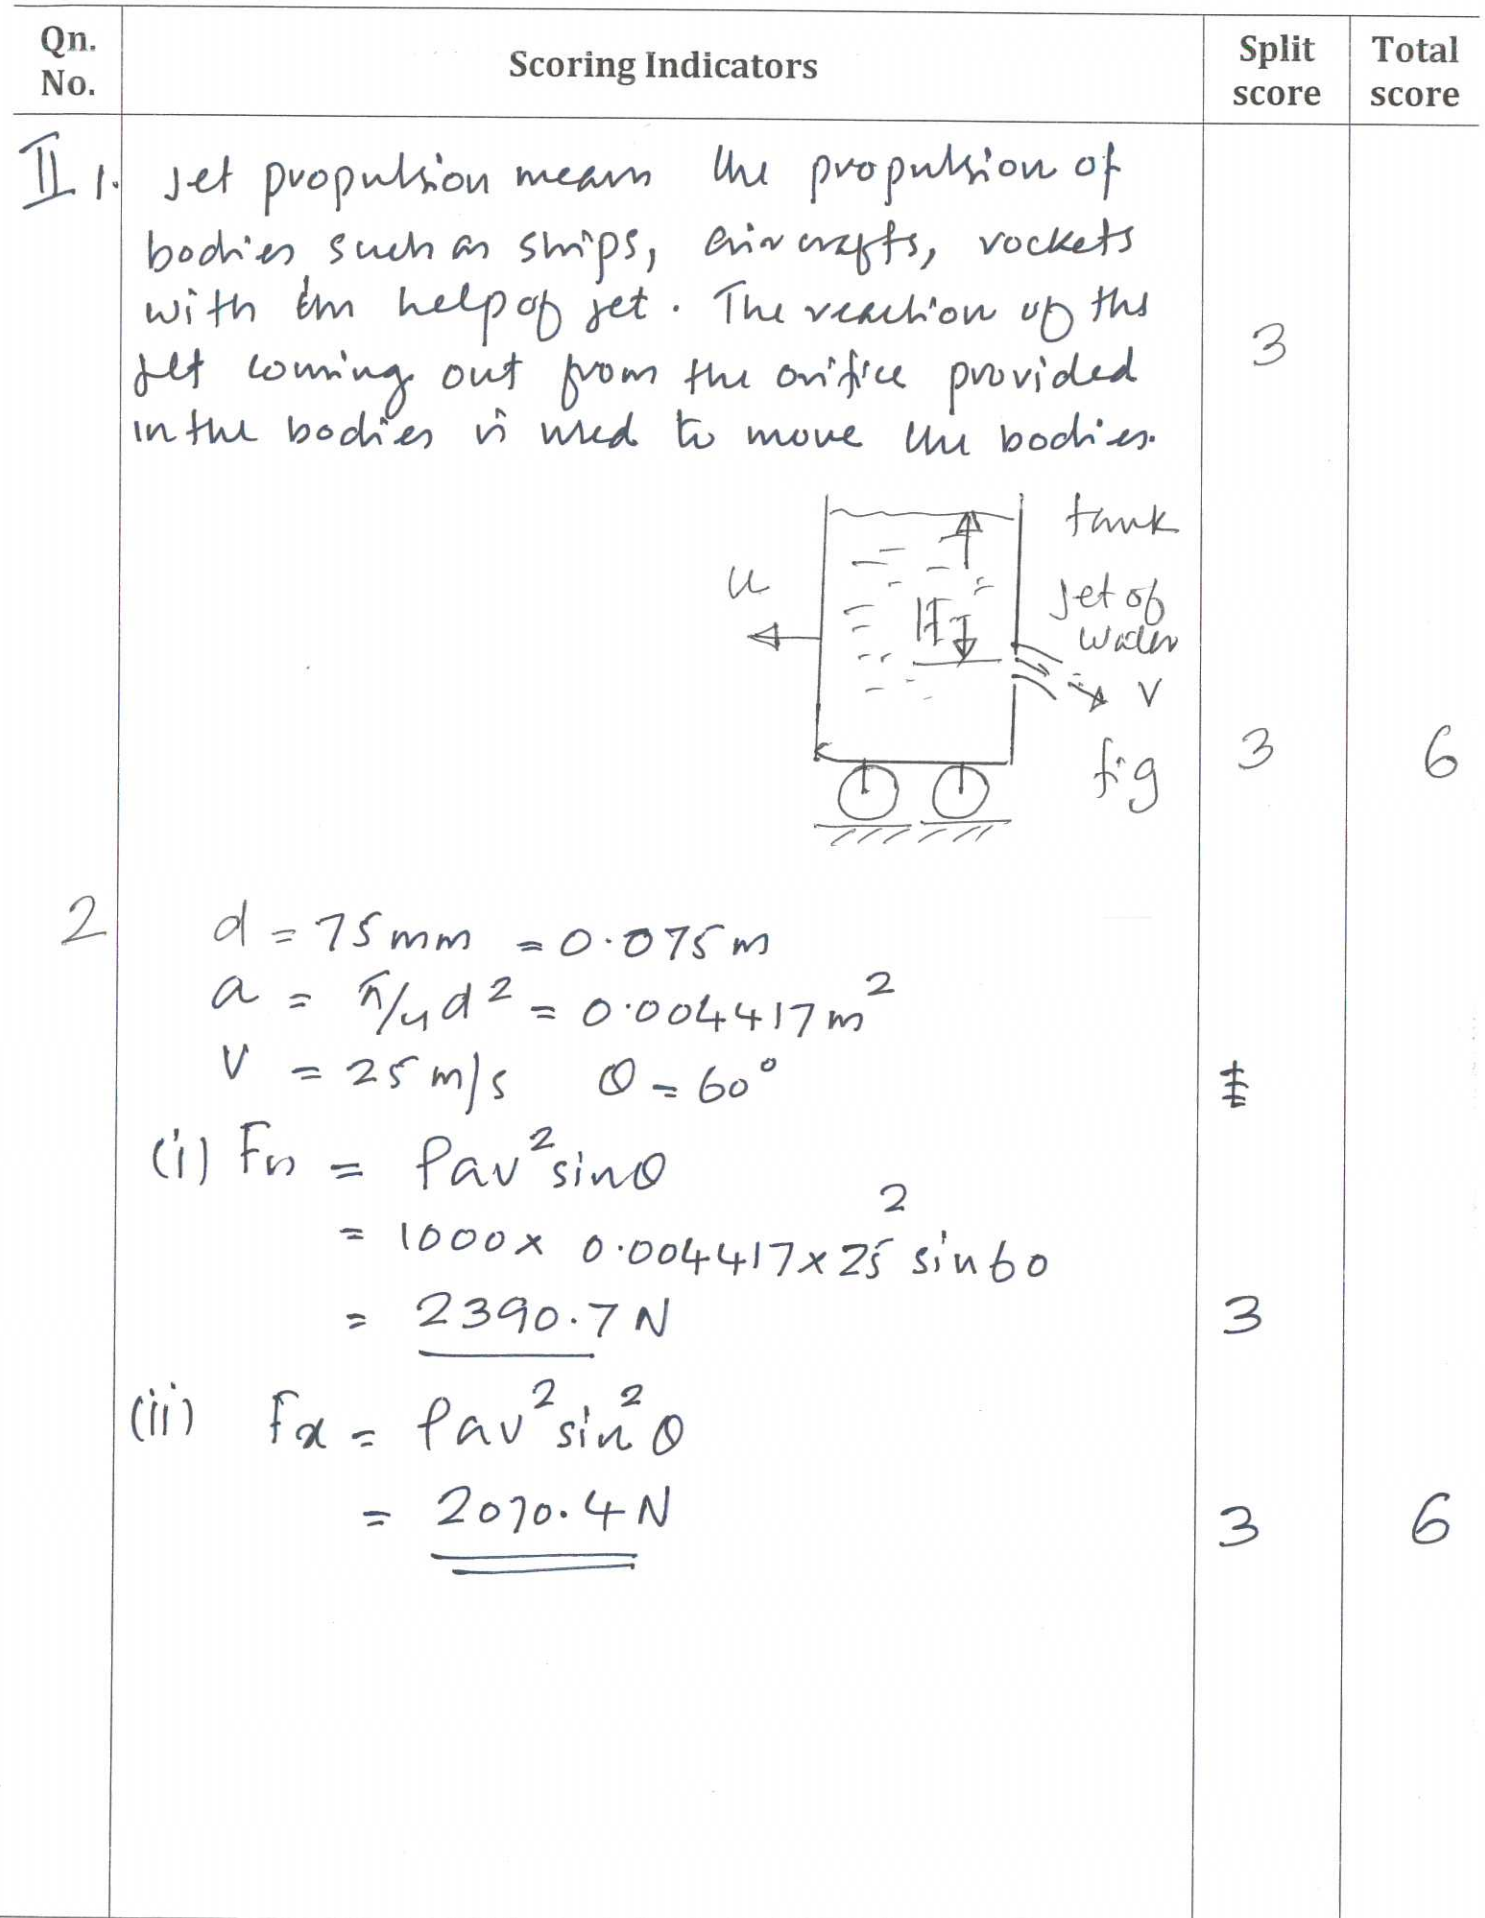 Qn. No.
Scoring Indicators
Split score
Total score
II 1. Jet propulsion means the propulsion of
bodies such as ships, aircrafts, rockets
with the help of jet. The reaction of the
jet coming out from the orifice provided
in the bodies is used to move the bodies.
3
tank
u
H
Jet of
water
V
fig
3
6
2
d = 75 mm = 0.075 m
a = π/4 d² = 0.004417 m²
V = 25 m/s θ = 60°
(i) Fn = ρav² sinθ
= 1000 × 0.004417 × 25² sin 60
= 2390.7 N
3
(ii) Fx = ρav² sin²θ
= 2070.4 N
3
6